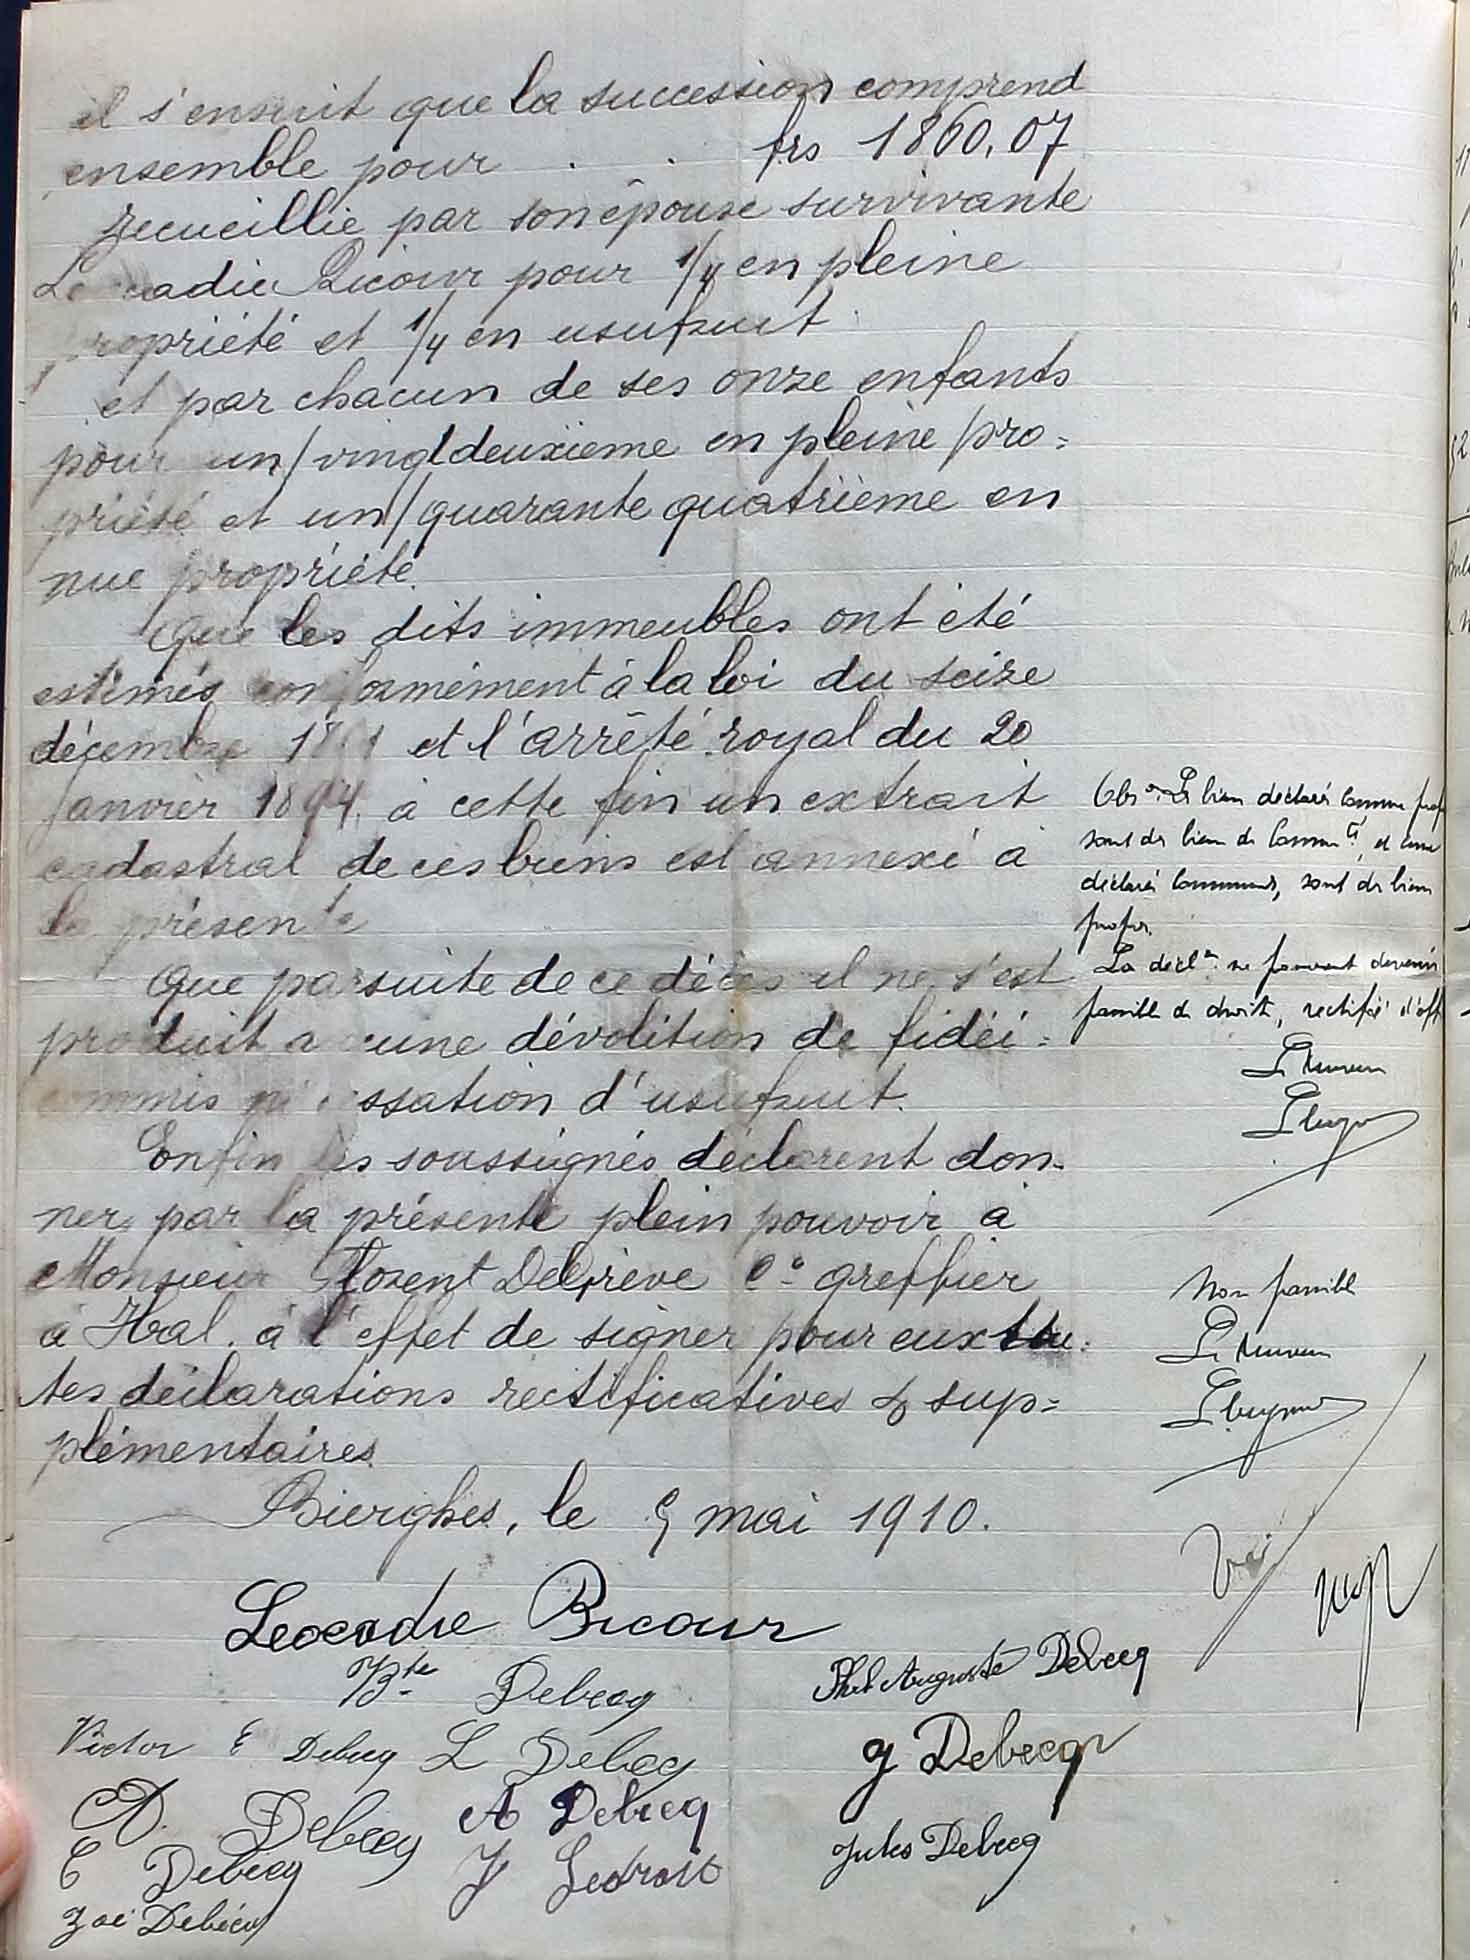 il s'ensuit que la succession comprend
ensemble pour . . frs 1860,07
recueillie par son épouse survivante
Léocadie Ricour pour 1/4 en pleine
propriété et 1/4 en usufruit.
et par chacun de ses onze enfants
pour un/vingtdeuxieme en pleine pro=
priété et un/quarante quatrième en
nue propriété.
Que les dits immeubles ont été
estimés conformément à la loi du seize
décembre 1851 et l'arrêté royal du 20
Janvier 1894. à cette fin un extrait
cadastral de ces biens est annexé à
la présente
Que par suite de ce décès il ne s'est
produit aucune dévolition de fidéi=
commis ni cessation d'usufruit.
Enfin les soussignés déclarent don-
ner par la présente plein pouvoir à
Monsieur Florent Delprève greffier
à Hal. à l'effet de signer pour eux tou=
tes déclarations rectificatives & sup=
plémentaires
Bierghes, le 9 mai 1910.
Obson. Les biens déclarés comme
sont des biens de commté, et ceux
déclarés communs, sont des biens
propres.
La décln. ne pouvant devenir
passible de droits, rectifié d'off
Non passible
Leocadie Ricour
Bte Debecq
Phil Auguste Debecq
Victor E Debecq L Debecq
J Debecq
D. Debecq A Debecq
E Debecq J Ledroit
Jules Debecq
Zoé Debecq